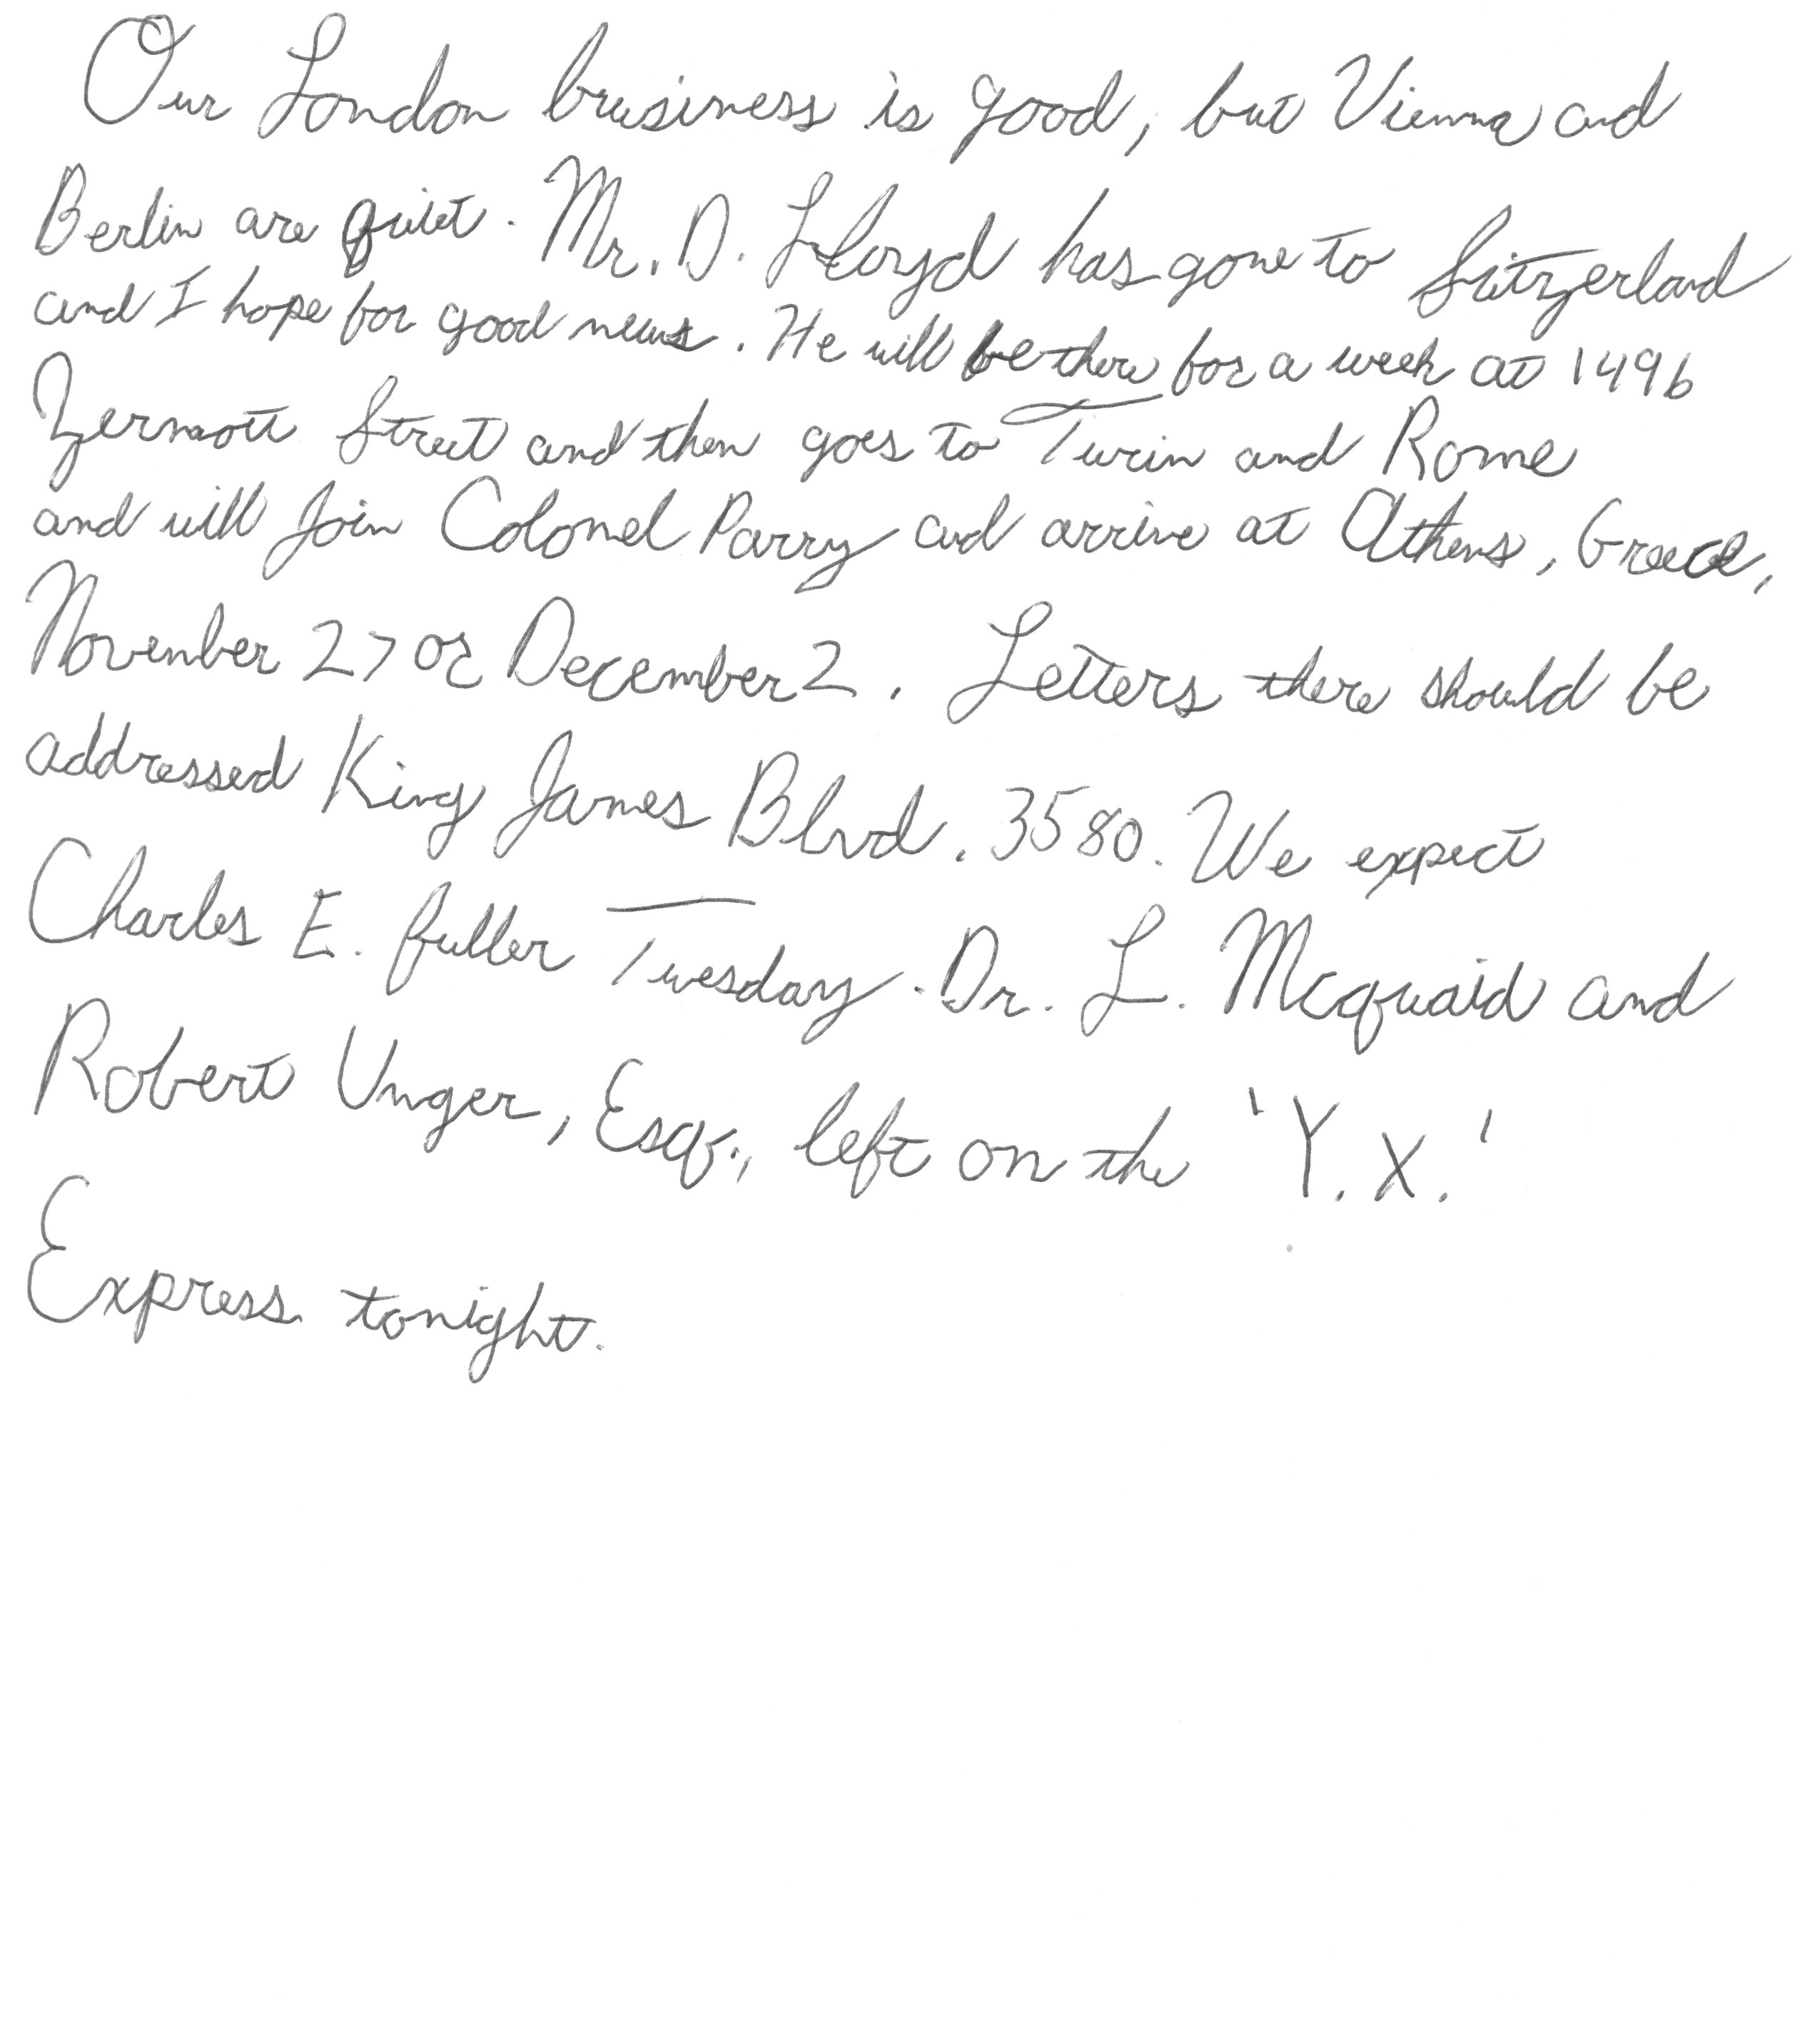 Our London business is good, but Vienna and
Berlin are quiet. Mr. D. Lloyd has gone to Sitzerland
and I hope for good news. He will be there for a week at 1496
Zermott Street and then goes to Turin and Rome
and will join Colonel Parry and arrive at Athens, Greece,
November 27 or December 2. Letters there should be
addressed King James Blvd. 3580. We expect
Charles E. Fuller Tuesday. Dr. L. Mcquaid and
Robert Unger, Esq., left on the 'Y.X.'
Express tonight.